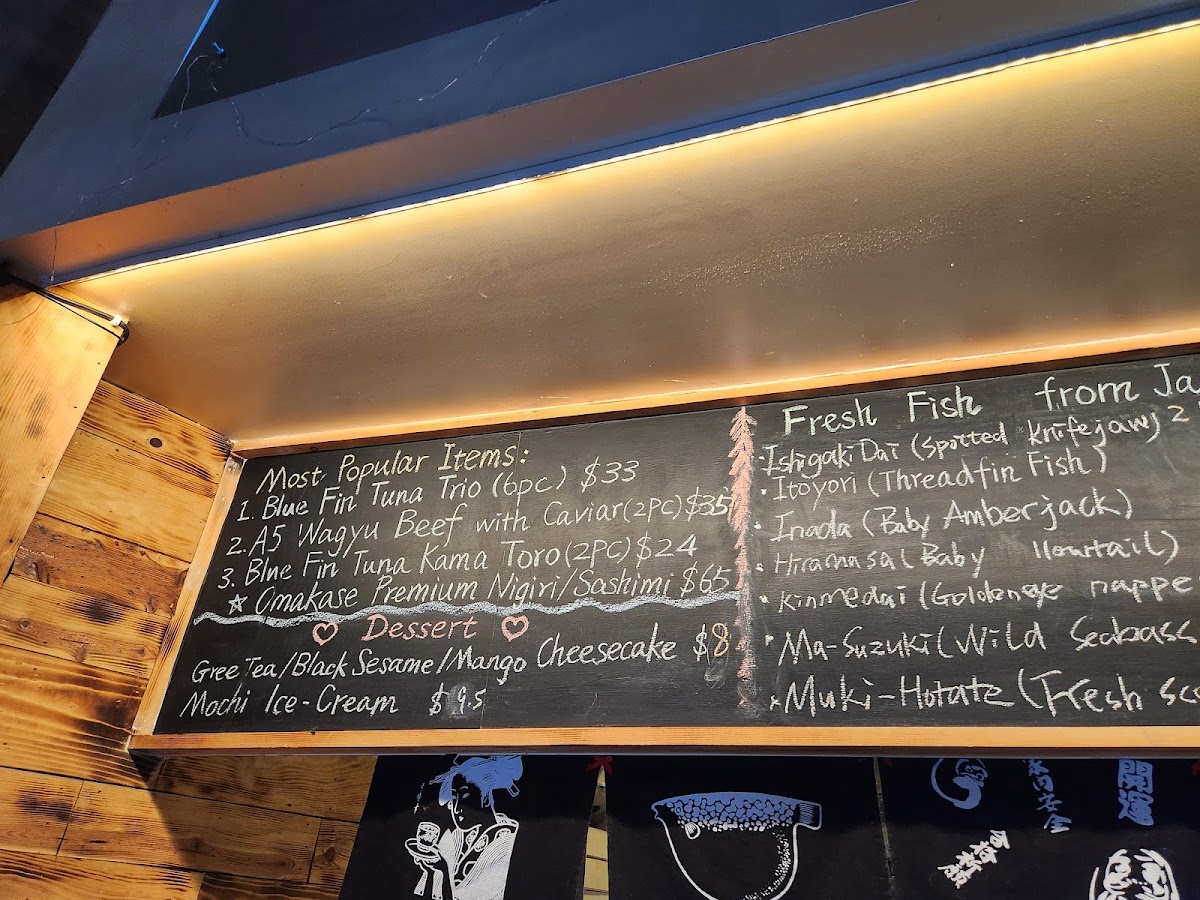 Most Popular Items:
1. Blue Fin Tuna Trio (6pc) $33
2. A5 Wagyu Beef with Caviar (2PC) $35
3. Blue Fin Tuna Kama Toro (2PC) $24
☆ Omakase Premium Nigiri/Sashimi $65
♡ Dessert ♡
Gree Tea/Black Sesame/Mango Cheesecake $8
Mochi Ice-Cream $9.5
Fresh Fish from Ja
· Ishigaki Dai (Spotted Knifejaw) 2
· Itoyori (Threadfin Fish)
· Inada (Baby Amberjack)
· Hiramasa (Baby
· Kinmedai (Goldeneye nappe
· Ma-Suzuki (Wild Seabass
· Muki-Hotate (Fresh Sc
開運